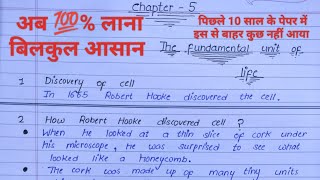 chapter - 5
अब 💯% लाना
बिलकुल आसान
पिछले 10 साल के पेपर में
इस से बाहर कुछ नहीं आया
The fundamental unit of
life
1 Discovery of cell
In 1665 Robert Hooke discovered the cell.
2 How Robert Hooke discovered cell ?
• When he looked at a thin slice of cork under
his microscope, he was surprised to see what
looked like a honeycomb.
• The cork was made up of many tiny units